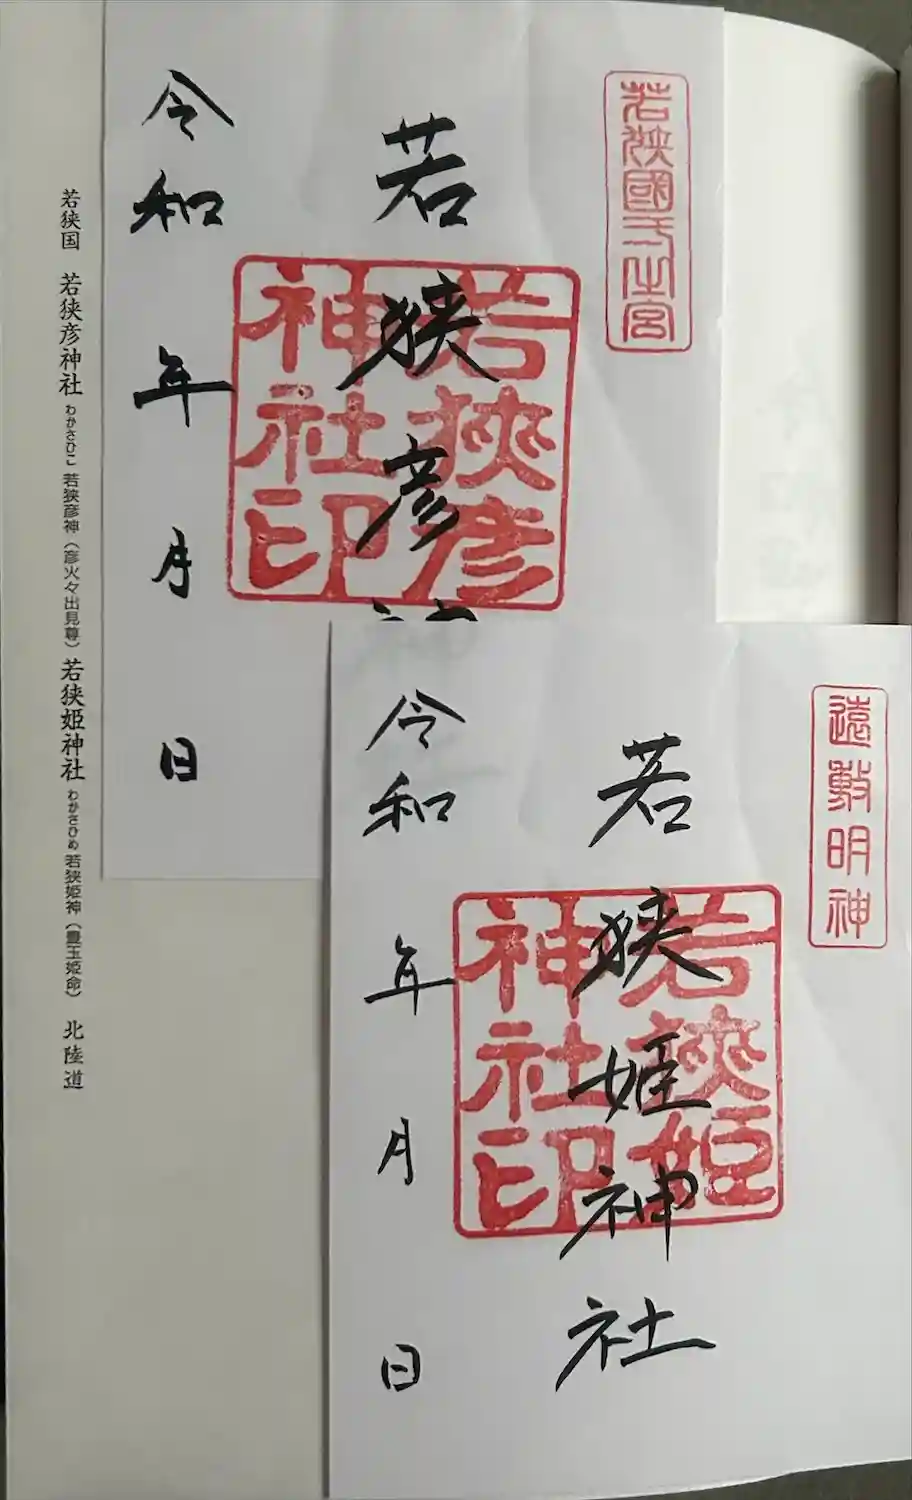 若狭國一之宮
若狭彦神
若狹彦
神社印
令和 年 月 日
遠敷明神
若狭姫神社
若狹姫
神社印
令和 年 月 日
若狭国 若狭彦神社 わかさひこ 若狭彦神（彦火々出見尊） 若狭姫神社 わかさひめ 若狭姫神（豊玉姫命） 北陸道